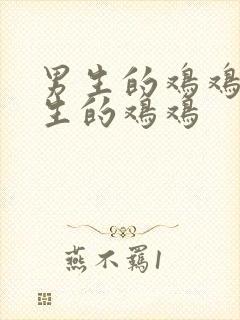 男生的鸡鸡
生的鸡鸡
燕不羁1